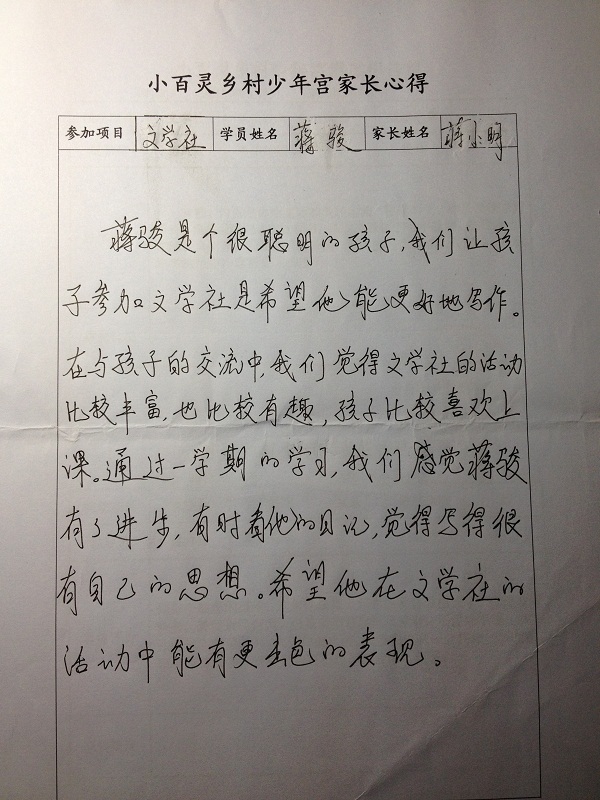 小百灵乡村少年宫家长心得
参加项目 文学社 学员姓名 蒋骏 家长姓名 蒋小明
蒋骏是个很聪明的孩子，我们让孩
子参加文学社是希望他能更好地写作。
在与孩子的交流中，我们觉得文学社的活动
比较丰富，也比较有趣，孩子比较喜欢上
课。通过一学期的学习，我们感觉蒋骏
有了进步，有时看他的日记，觉得写得很
有自己的思想。希望他在文学社的
活动中能有更出色的表现。